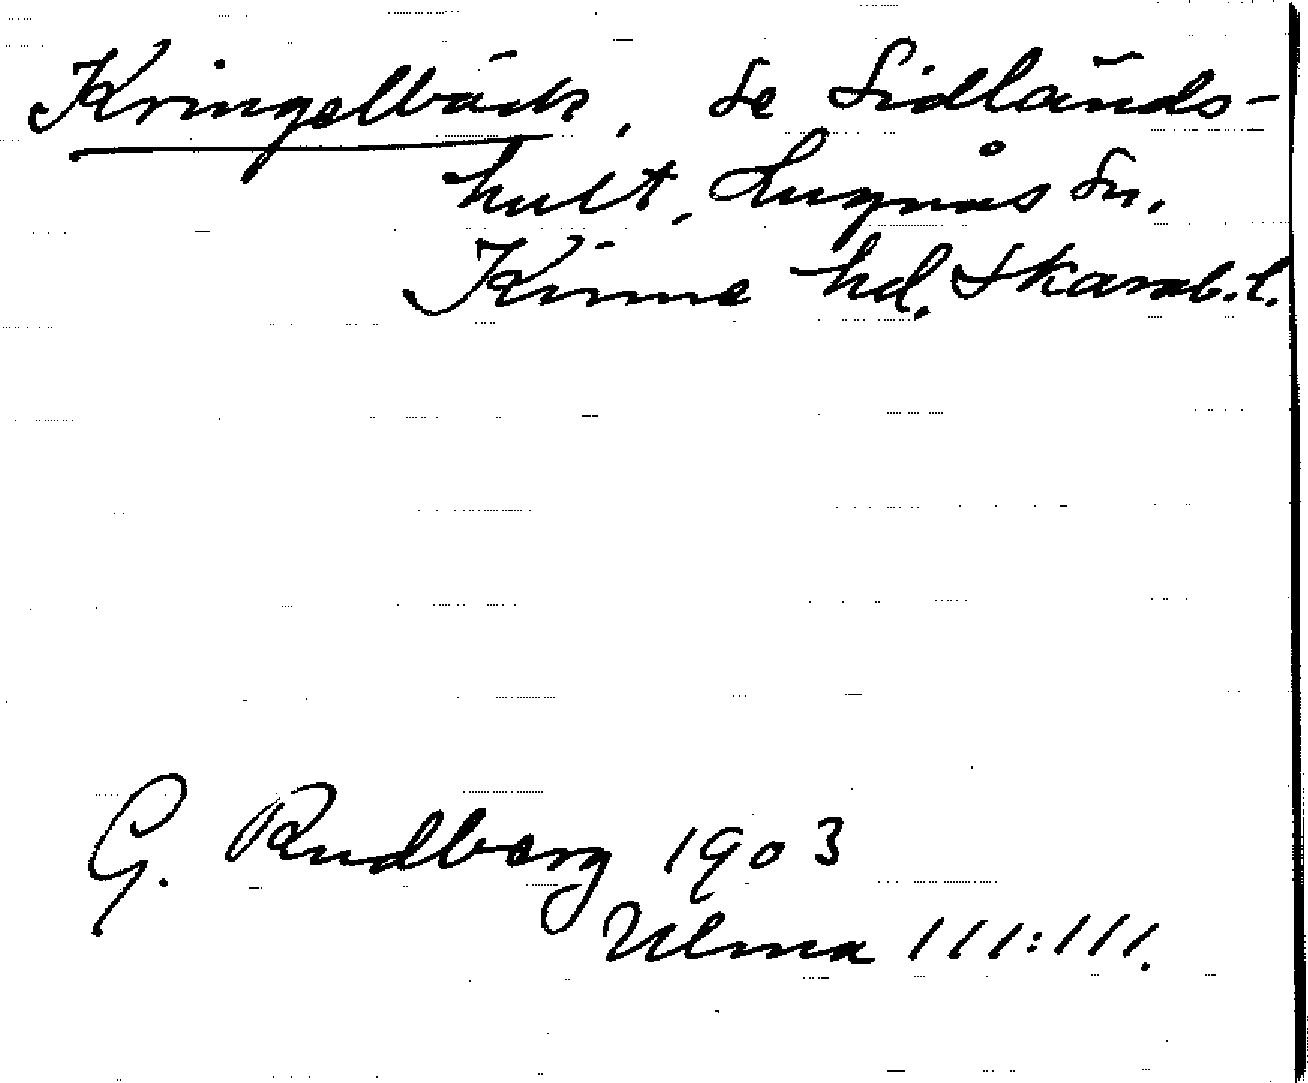 Kringelbäck, se Sidländs-
hult, Lugnås sn,
Kinne hd. Skarab. l.
G. Rudberg 1903
Ulma 111:111.